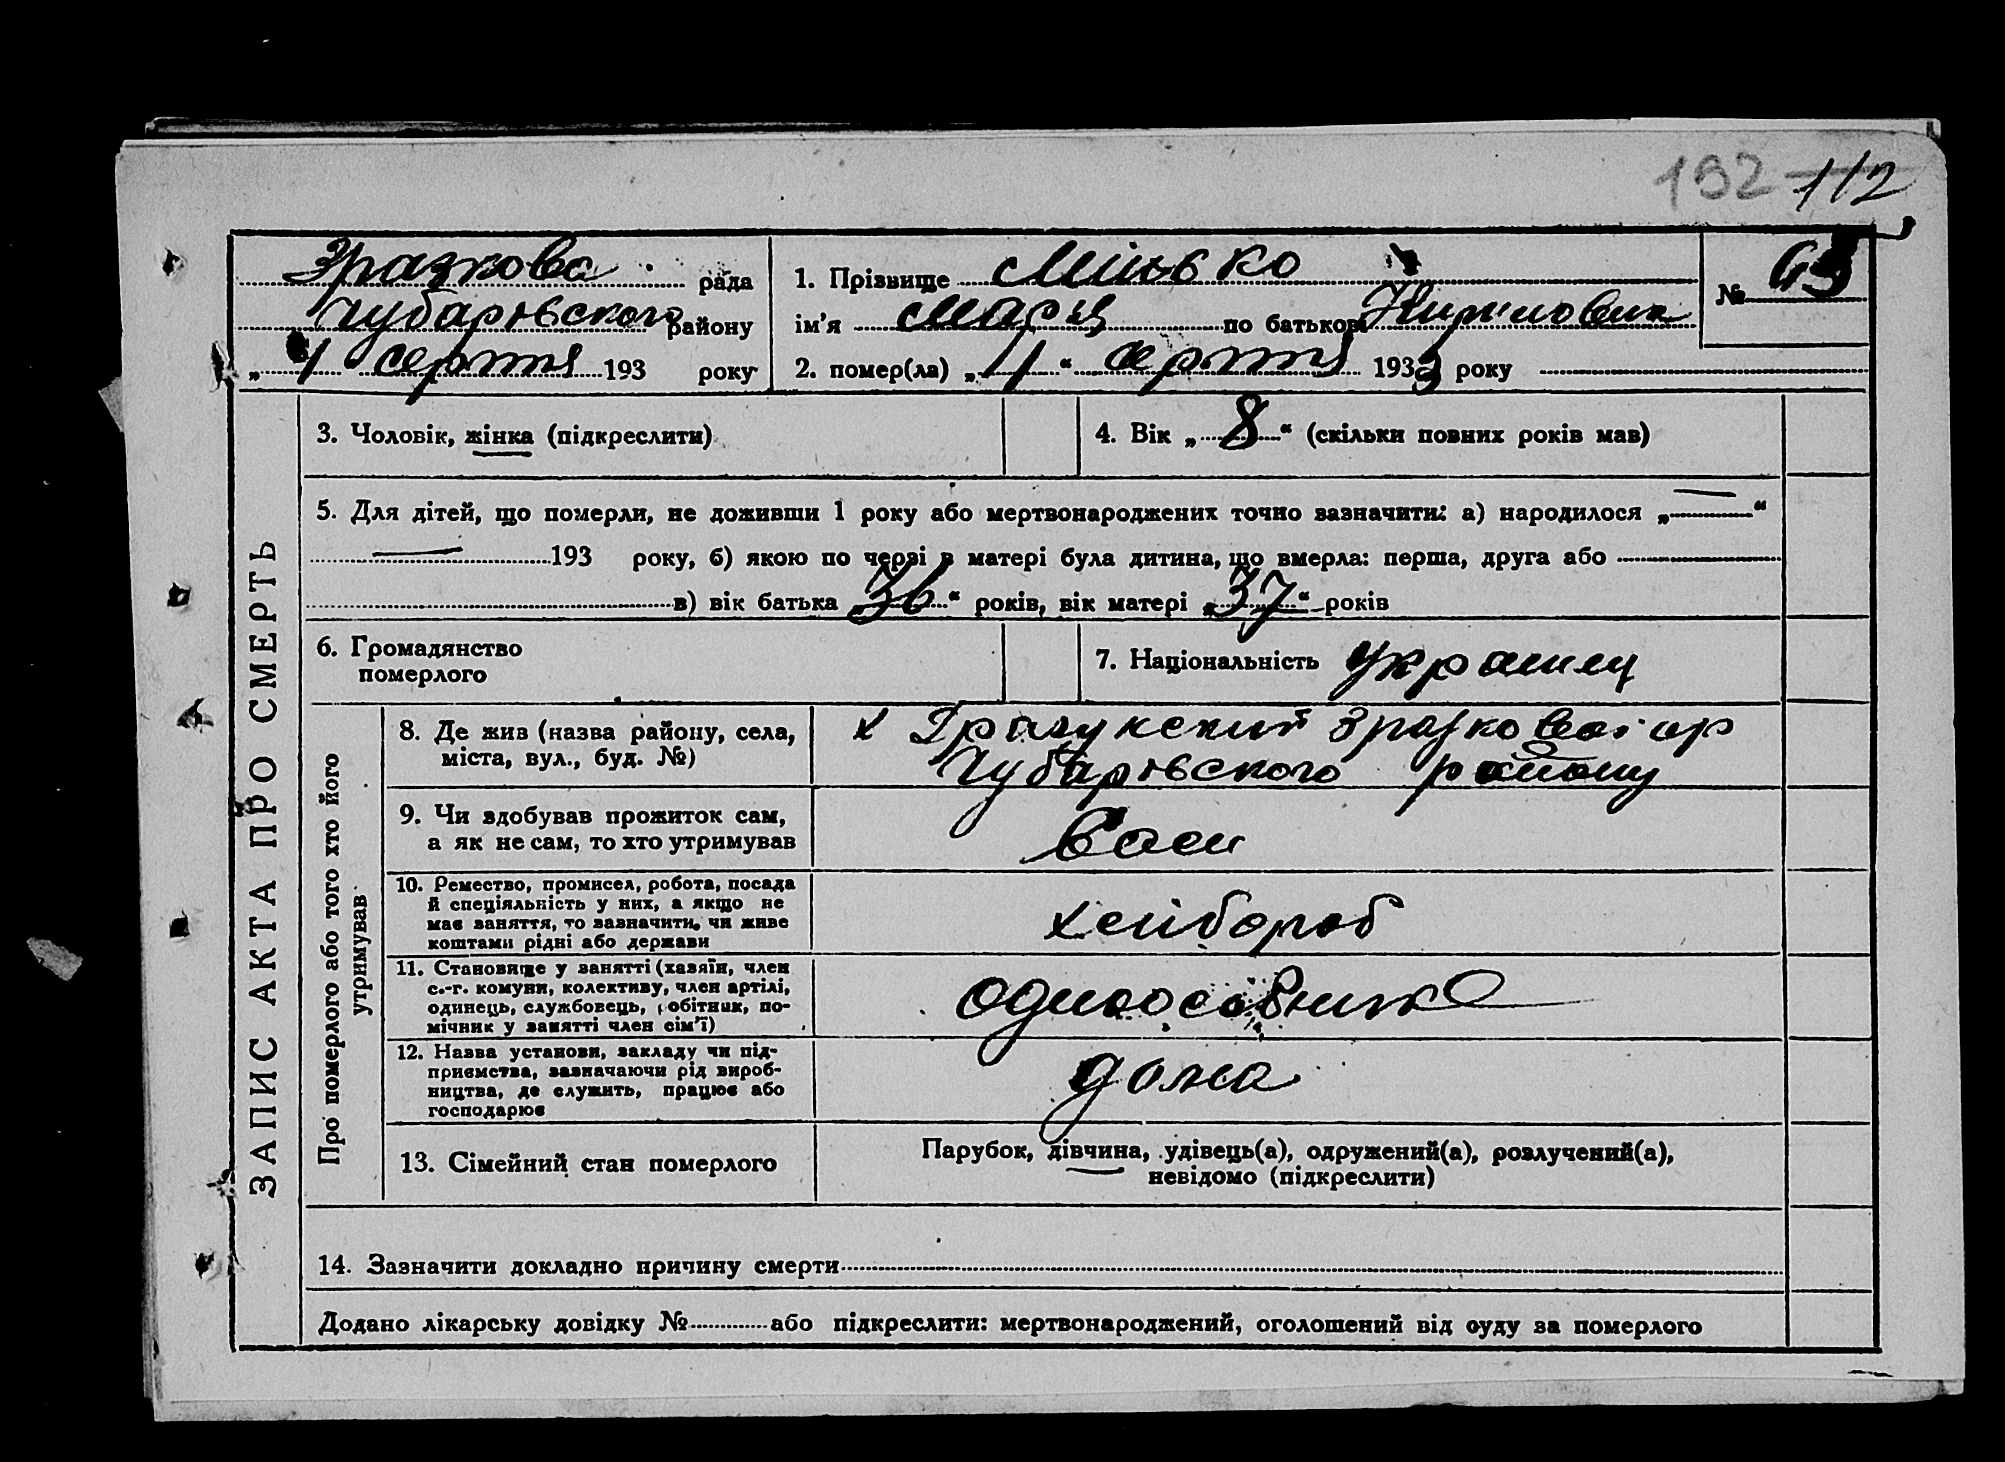 192 112
Зразкова рада
Чубарівського району
„ 1 серпня 193 року
1. Прізвище Мінько
ім'я Марія по батькові
2. помер(ла) „ 1 “ серпня 1933 року
№ 43
ЗАПИС АКТА ПРО СМЕРТЬ
3. Чоловік, жінка (підкреслити)
4. Вік „ 8 “ (скільки повних років мав)
5. Для дітей, що померли, не доживши 1 року або мертвонароджених точно зазначити: а) народилося „ — “
— 193 року, б) якою по черзі в матері була дитина, що вмерла: перша, друга або
в) вік батька „ 36 “ років, вік матері „ 37 “ років
6. Громадянство
померлого
7. Національність україн
Про померлого або того хто його
утримував
8. Де жив (назва району, села,
міста, вул., буд. №)
х Зразково
Чубарівського району
9. Чи здобував прожиток сам,
а як не сам, то хто утримував
10. Ремество, промисел, робота, посада
й спеціяльність у них, а якщо не
має заняття, то зазначити, чи живе
коштами рідні або держави
хлібороб
11. Становище у занятті (хазяїн, член
с.-г. комуни, колективу, член артілі,
одинець, службовець, робітник, по-
мічник у занятті член сім'ї)
одноосібник
12. Назва установи, закладу чи під-
приємства, зазначаючи рід вироб-
ництва, де служить, працює або
господарює
дома
13. Сімейний стан померлого
Парубок, дівчина, удівець(а), одружений(а), розлучений(а),
невідомо (підкреслити)
14. Зазначити докладно причину смерти
Додано лікарську довідку № або підкреслити: мертвонароджений, оголошений від суду за померлого